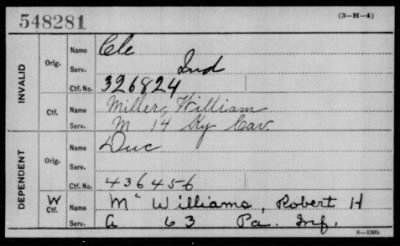 548281 (3-H-4)
INVALID
Orig. Name Cle
Serv. Ind
Ctf. No. 326824
Ctf. Name Miller, William
Serv. M 14 Ky Cav.
DEPENDENT
Orig. Name Duc
Serv.
Ctf. No. 436456
W Ctf. Name Mc Williams, Robert H
Serv. A 63 Pa. Inf.